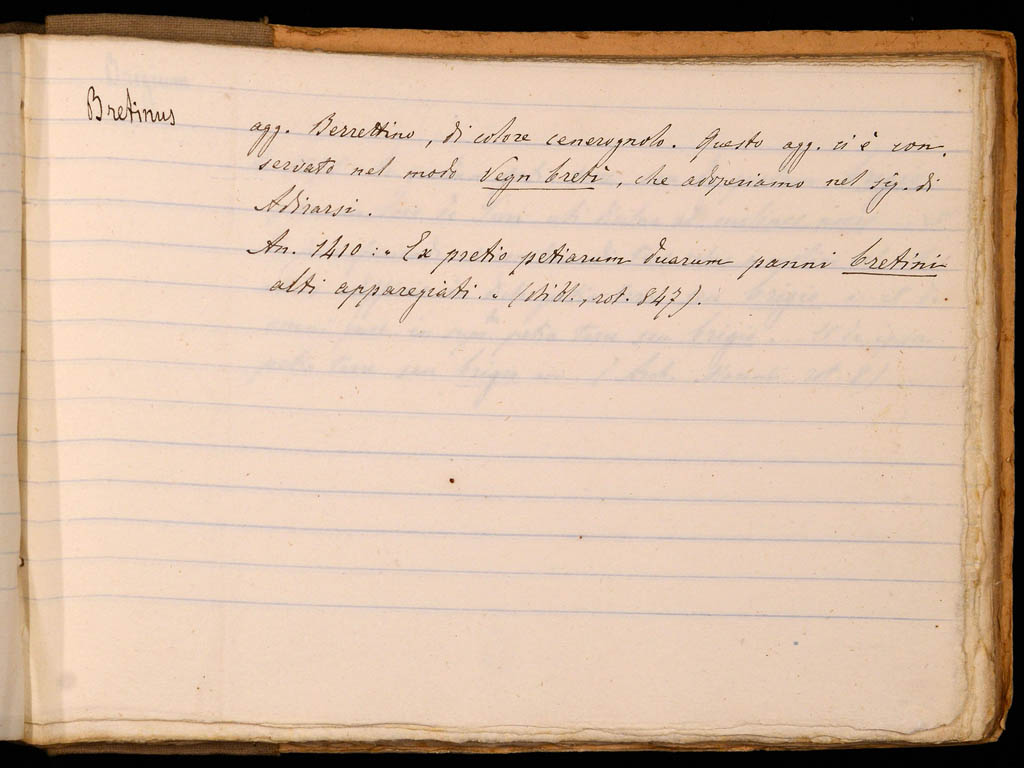 Bretinus
agg. Berrettino, di colore cenerognolo. Questo agg. ci è con,
servato nel modo Vegn bretì, che adoperiamo nel sig. di
Adirarsi.
An. 1410: „ Ex pretio petiarum duarum panni bretini
alti apparegiati. „ (Bibl., rot. 847).